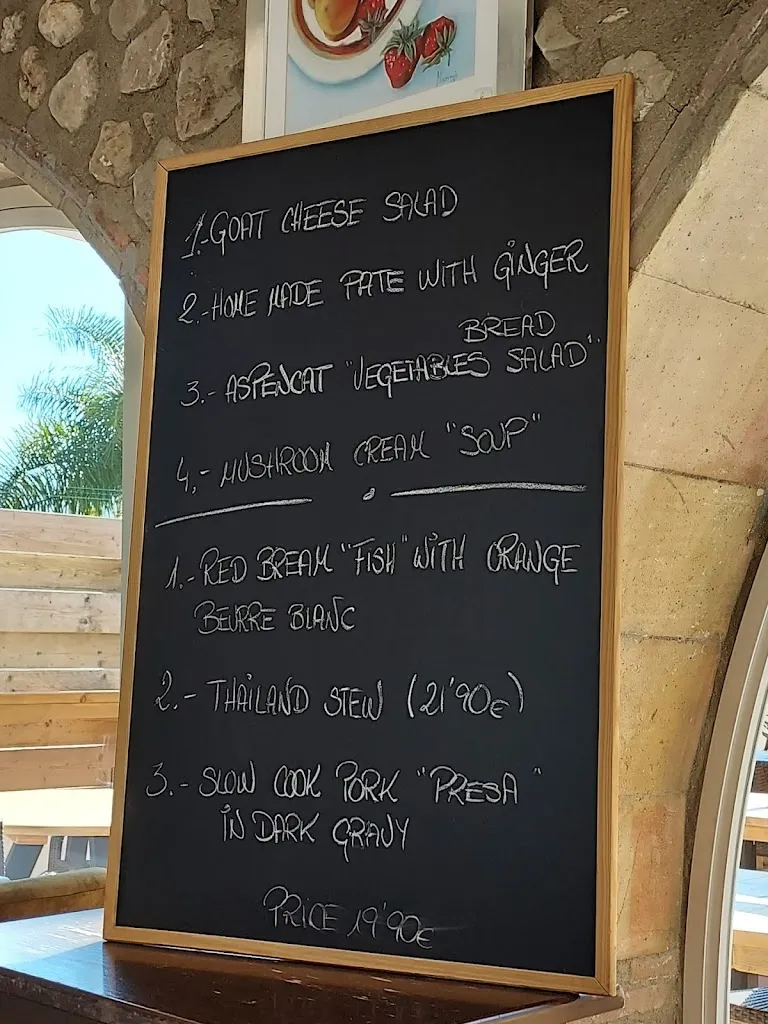 1.- GOAT CHEESE SALAD
2.- HOME MADE PATE WITH GINGER
BREAD
3.- ASPENCAT "VEGETABLES SALAD"
4.- MUSHROOM CREAM "SOUP"
1.- RED BREAM "FISH" WITH ORANGE
BEURRE BLANC
2.- THAILAND STEW (21'90€)
3.- SLOW COOK PORK "PRESA"
IN DARK GRAVY
PRICE 19'90€